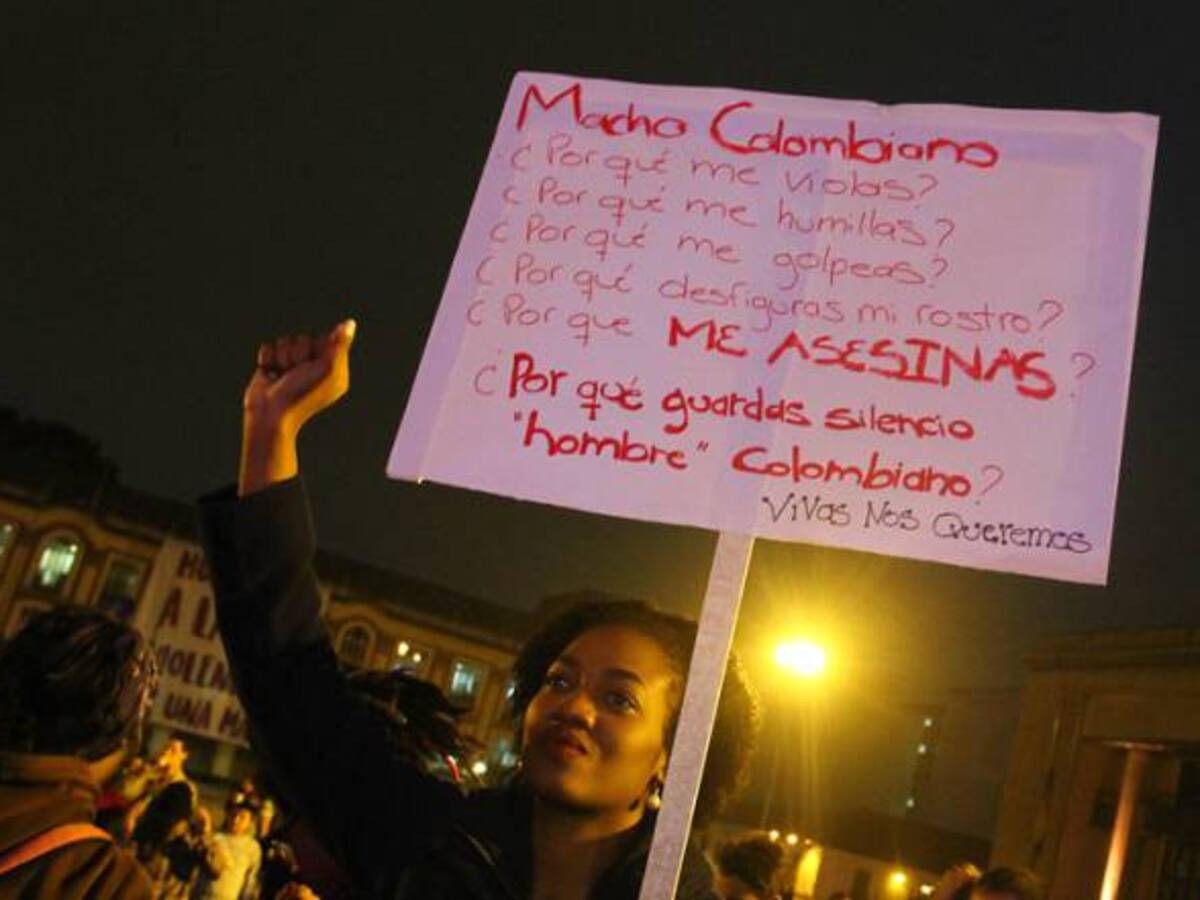 Macho Colombiano
¿Por qué me violas?
¿Por qué me humillas?
¿Por qué me golpeas?
¿Por qué desfiguras mi rostro?
¿Por que ME ASESINAS?
¿Por qué guardas silencio
"hombre" Colombiano?
Vivas Nos Queremos
A LA
UNA